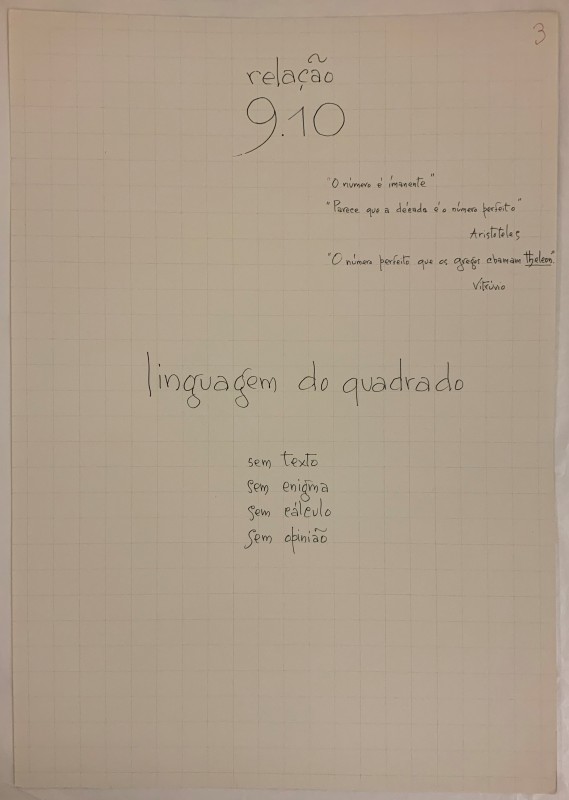 3
relação
9.10
"O número é imanente"
"Parece que a década é o número perfeito"
Aristoteles
"O número perfeito que os gregos chamam theleon"
Vitrúvio
linguagem do quadrado
sem texto
sem enigma
sem cálculo
sem opinião